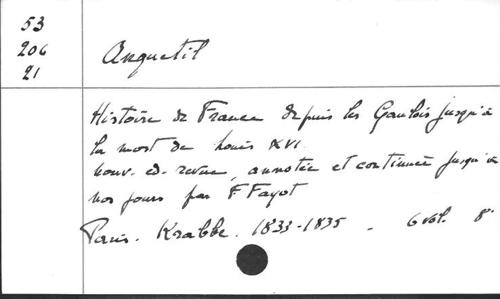 53
206
21
Anquetil
Histoire de France depuis les Gaulois jusqu'à
la mort de Louis XVI.
nouv. ed. revue, annotée et continuée jusqu'à
nos jours par F. Fayot
Paris. Krabbe. 1833-1835. 6 vol. 8°